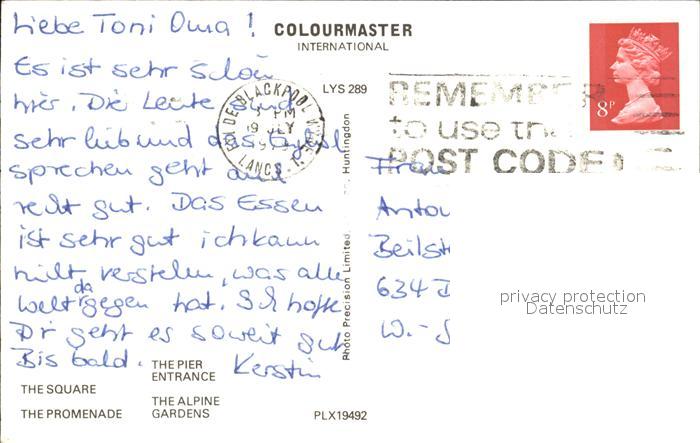 Liebe Toni Oma!
Es ist sehr schön
hier. Die Leute sind
sehr lieb und das
sprechen geht auch
recht gut. Das Essen
ist sehr gut ich kann
nicht verstehen, was alle
Welt da gegen hat. Ich hoffe
Dir geht es soweit gut
Bis bald. Kerstin
COLOURMASTER
INTERNATIONAL
LYS 289
BLACKPOOL
PM
19 JLY
LANCS.
REMEMBER
to use the
POST CODE
8P
Photo Precision Limited, Huntingdon
Beilst
634
W.-
privacy protection
Datenschutz
THE PIER
ENTRANCE
THE SQUARE
THE ALPINE
THE PROMENADE
GARDENS
PLX19492